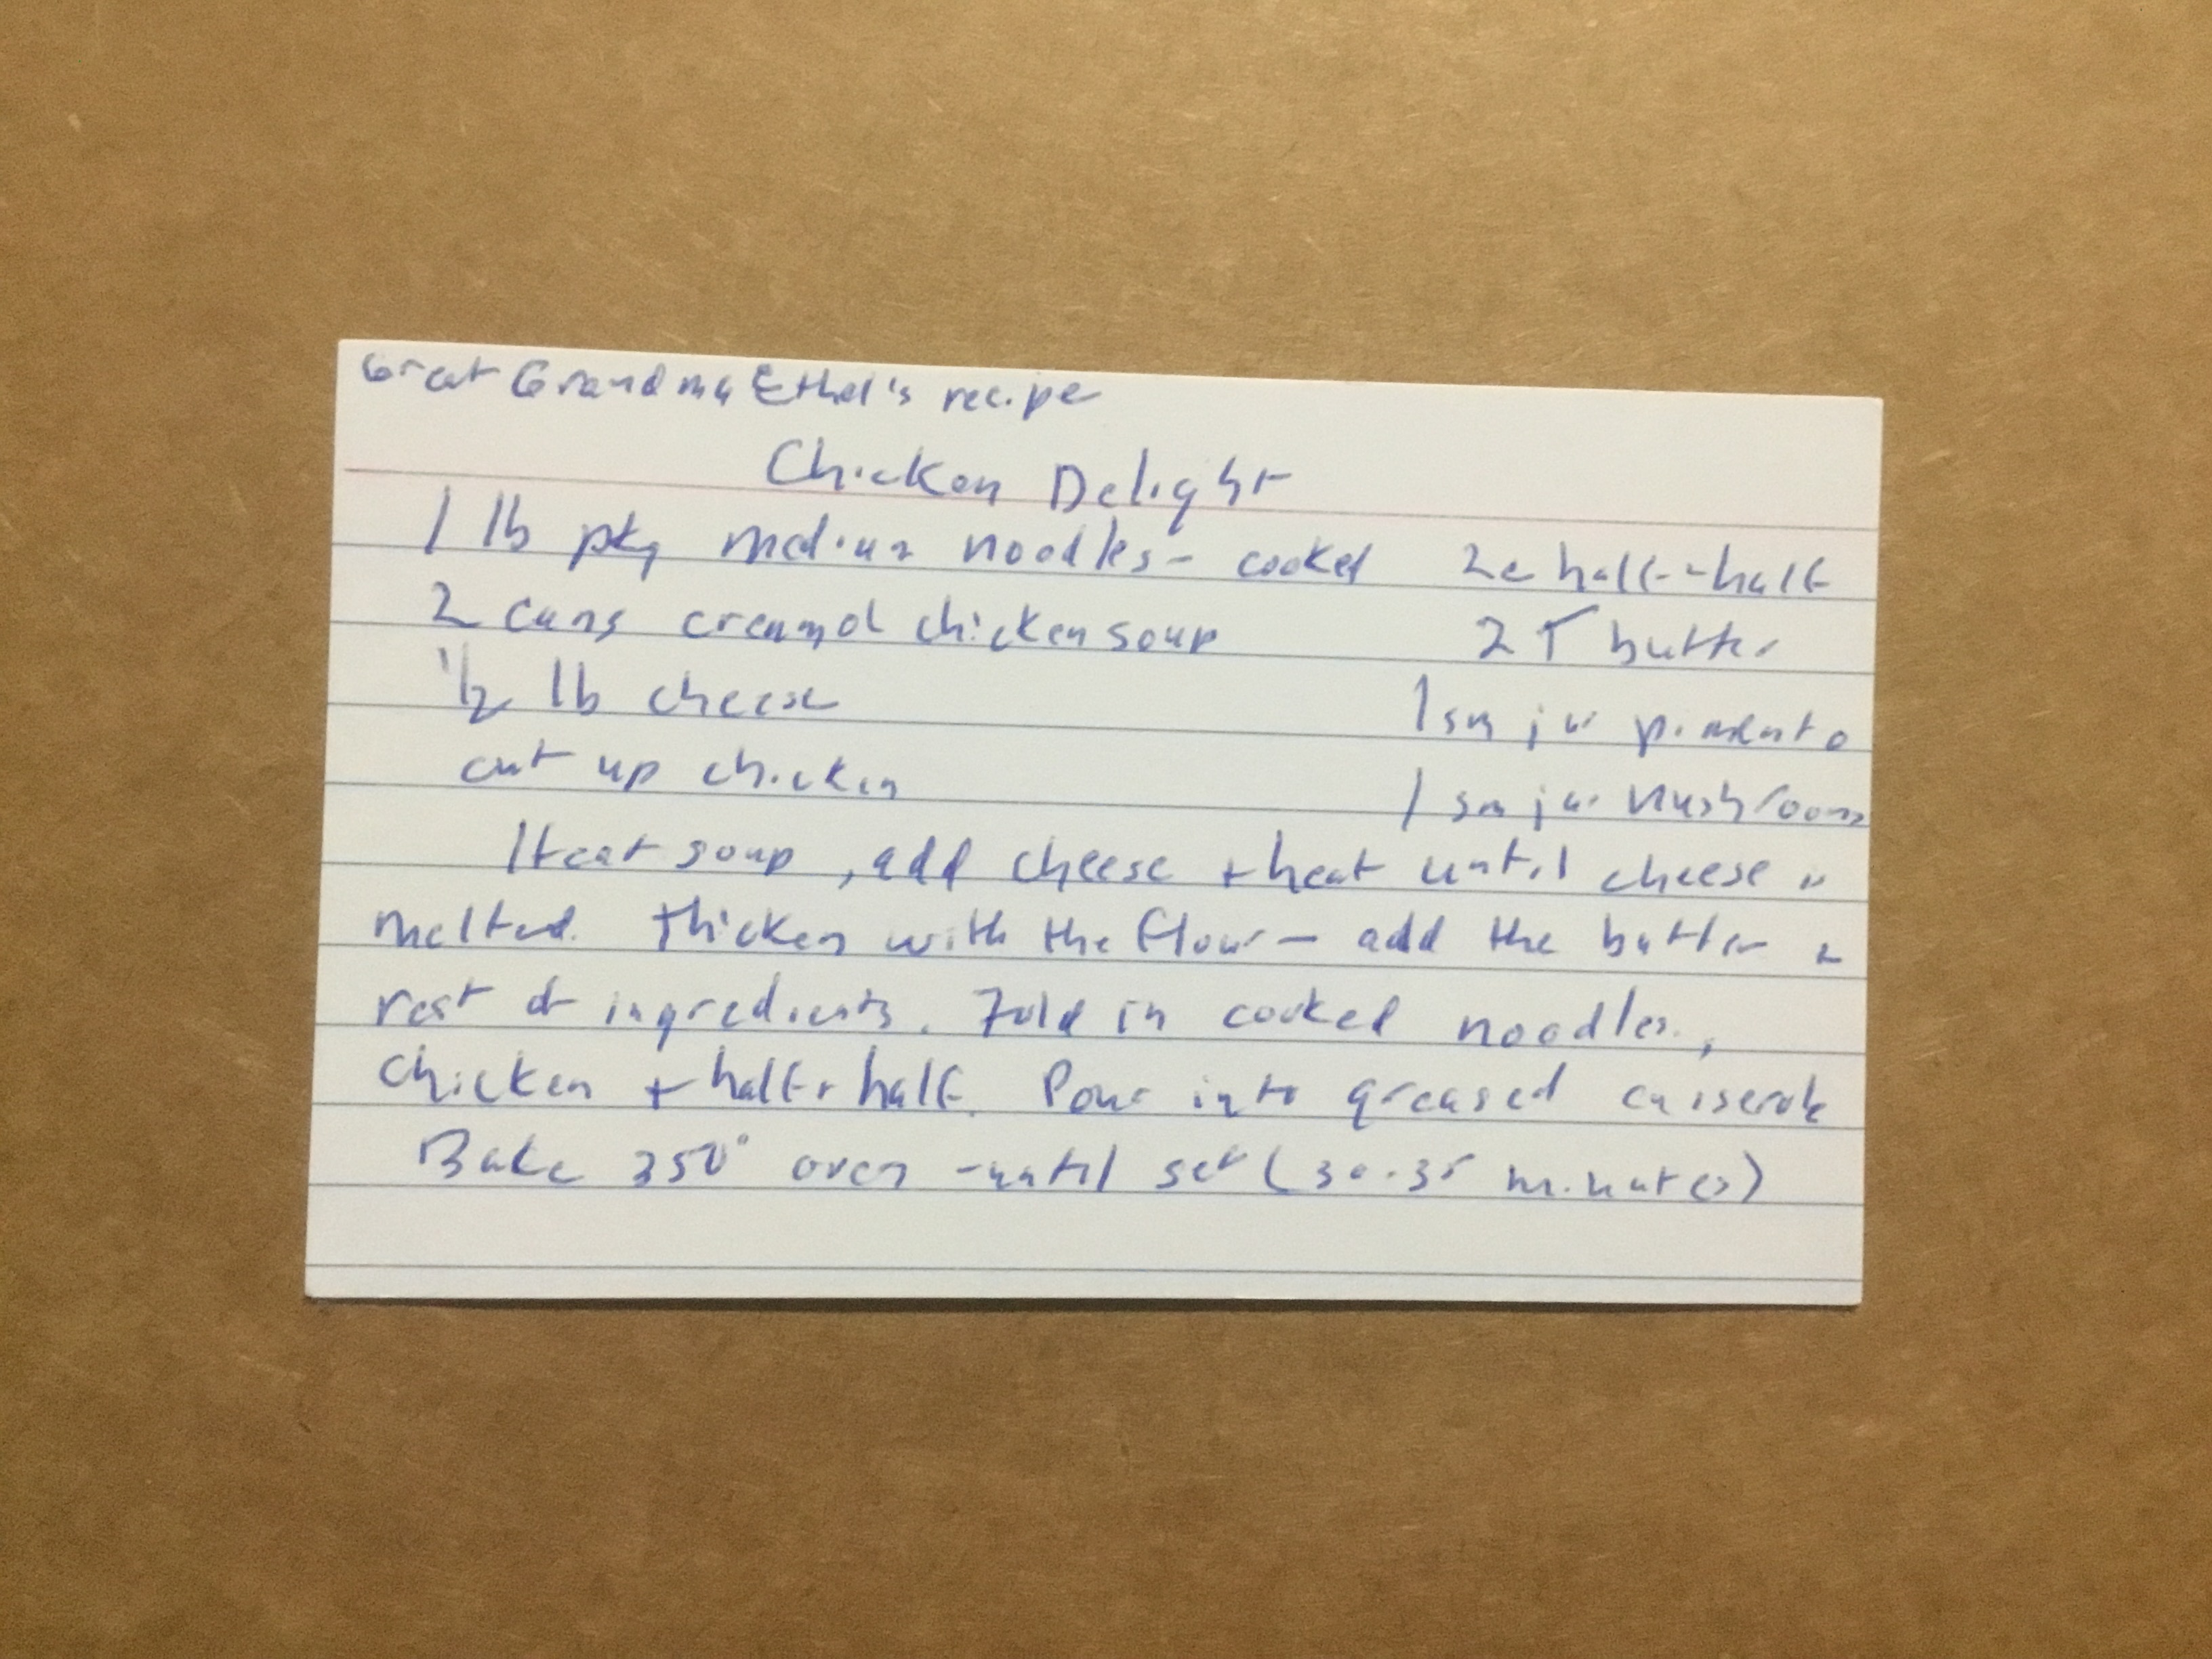 Great Grandma Ethel's recipe
Chicken Delight
1 lb pkg medium noodles - cooked 2c half-n-half
2 cans creamd chicken soup 2 T butter
1/2 lb cheese 1 sm jar pimento
cut up chicken 1 sm jar mushrooms
Heat soup, add cheese + heat until cheese is
melted. Thicken with the flour - add the butter +
rest of ingredients. Fold in cooked noodles,
chicken + half + half. Pour into greased casserole
Bake 350° oven - until set (30-35 minutes)